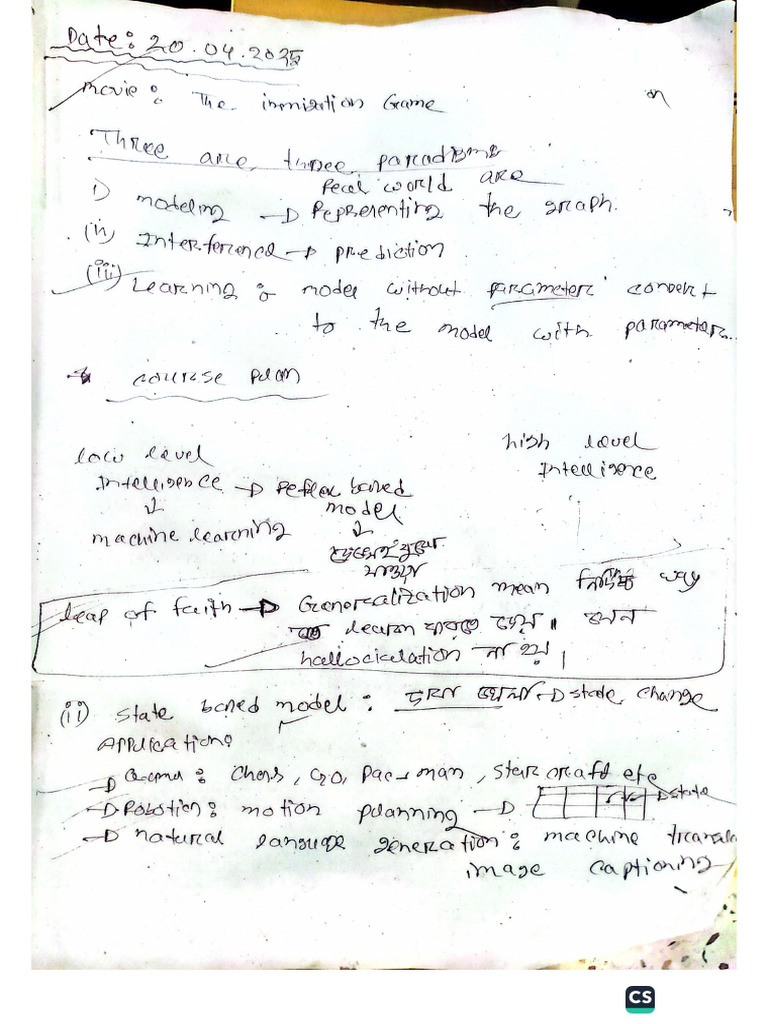 Date: 20.04.2025
Movie: The immitation Game
Three are three paradigms
real world are
i) modeling → Representing the graph.
(ii) Interference → prediction
(iii) Learning: model without parameter convert
to the model with parameter..
course plan
low level
high level
Intelligence → Reflex based
Intelligence
model
machine learning
leap of faith → Generalization mean way
learn করতে হবে। যেন
hallocination না হয়।
(ii) state based model: → state change
Application:
→ Game: Chess, GO, Pac-man, Starcraft etc
→ Robotics: motion planning → state
→ natural language generation: machine
image captioning
CS